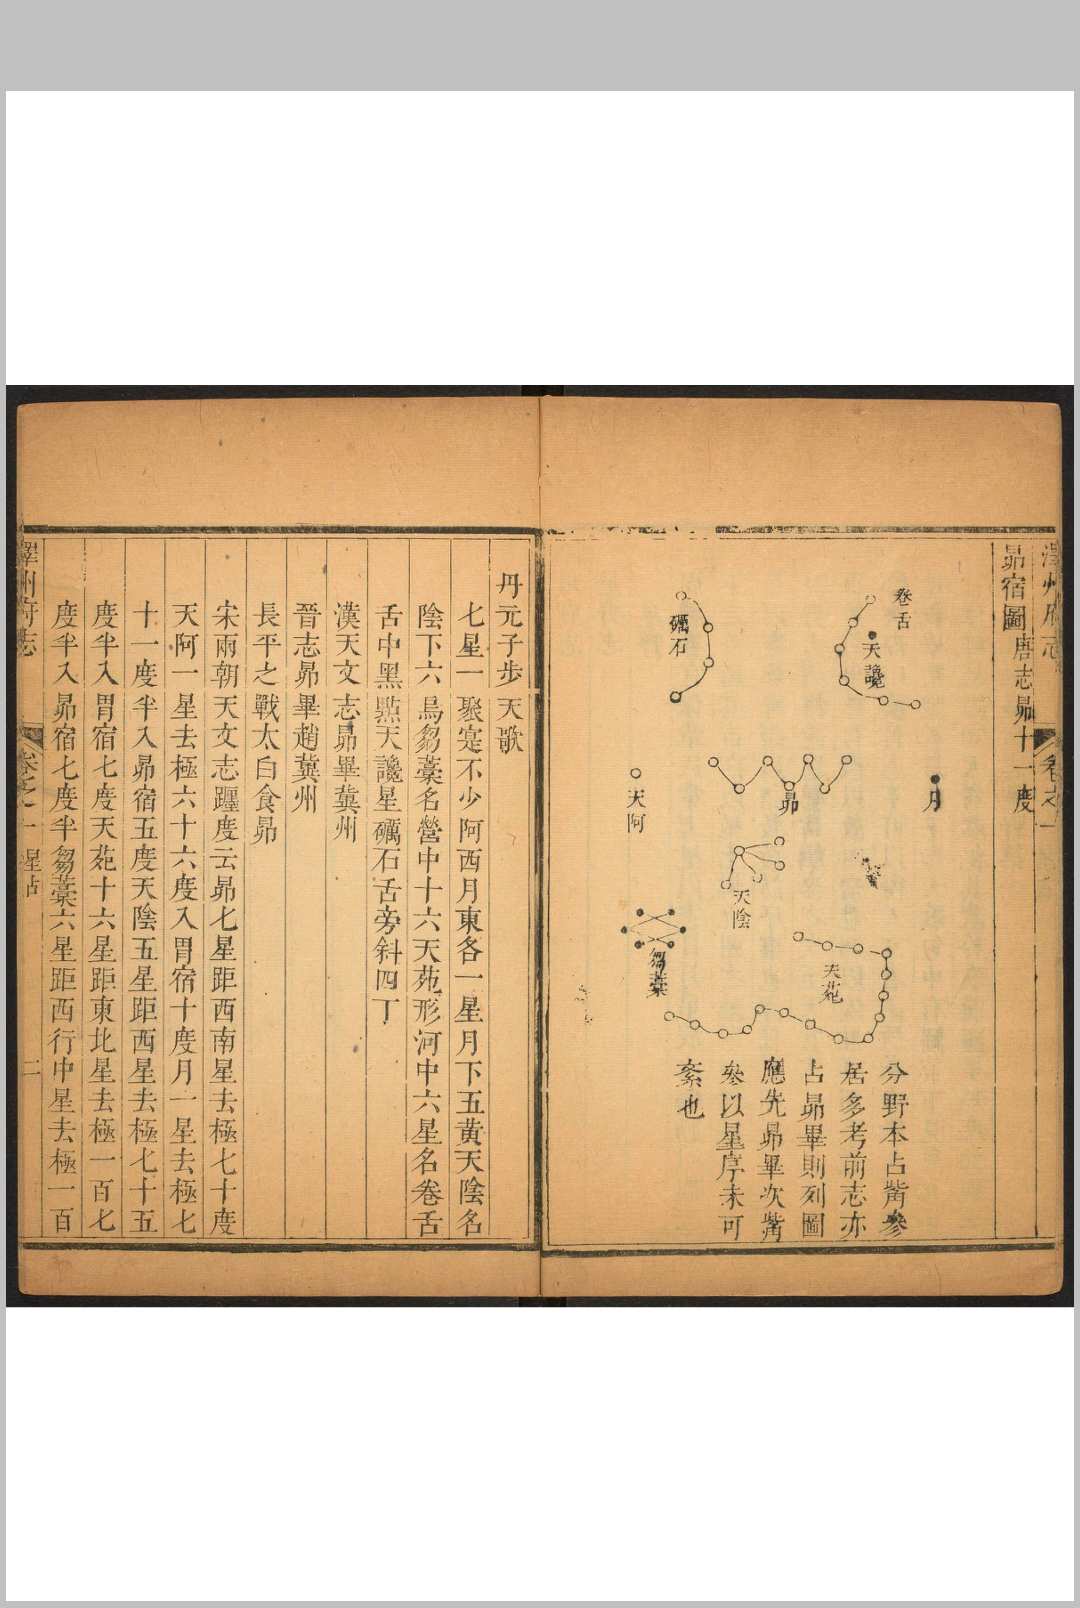 澤州府志
卷之一
昴宿圖唐志昴十一度
卷舌
天讒
礪石
月
昴
天阿
天陰
芻藁
天苑
分野本占觜參
居多考前志亦
占昴畢則列圖
應先昴畢次觜
參以星序未可
紊也
丹元子步天歌
七星一聚寔不少阿西月東各一星月下五黃天陰名
陰下六烏芻藁名營中十六天苑形河中六星名卷舌
舌中黑點天讒星礪石舌旁斜四丁
漢天文志昴畢冀州
晉志昴畢趙冀州
長平之戰太白食昴
宋兩朝天文志躔度云昴七星距西南星去極七十度
天阿一星去極六十六度入胃宿十度月一星去極七
十一度半入昴宿五度天陰五星距西星去極七十五
度半入胃宿七度天苑十六星距東北星去極一百七
度半入昴宿七度半芻藁六星距西行中星去極一百
澤州府志
卷之一
星占
二